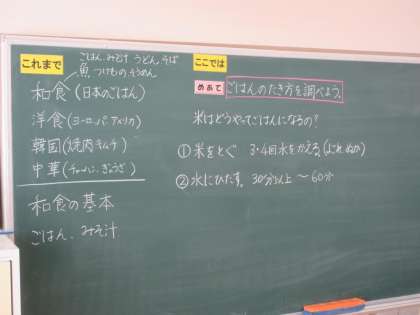 これまで
ごはん、みそ汁 うどん、そば
魚 つけもの そうめん
和食(日本のごはん)
洋食(ヨーロッパ、アメリカ)
韓国(焼肉、キムチ)
中華(チャーハン、ぎょうざ)
和食の基本
ごはん、みそ汁
ここでは
めあて
ごはんのたき方を調べよう。
米はどうやってごはんになるの?
①米をとぐ 3・4回水をかえる。(よごれ、ぬか)
②水にひたす。 30分以上〜60分